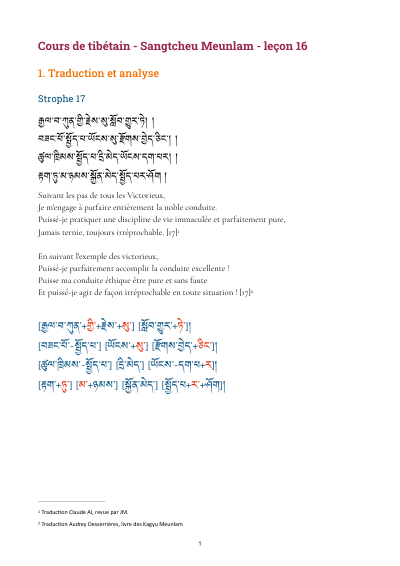 Cours de tibétain - Sangtcheu Meunlam - leçon 16
1. Traduction et analyse
Strophe 17
རྒྱལ་བ་ཀུན་གྱི་རྗེས་སུ་སློབ་གྱུར་ཏེ། །
བཟང་པོ་སྤྱོད་པ་ཡོངས་སུ་རྫོགས་བྱེད་ཅིང་། །
ཚུལ་ཁྲིམས་སྤྱོད་པ་དྲི་མེད་ཡོངས་དག་པར། །
རྟག་ཏུ་མ་ཉམས་སྐྱོན་མེད་སྤྱོད་པར་ཤོག །
Suivant les pas de tous les Victorieux,
Je m'engage à parfaire entièrement la noble conduite.
Puissé-je pratiquer une discipline de vie immaculée et parfaitement pure,
Jamais ternie, toujours irréprochable. [17]¹
En suivant l'exemple des victorieux,
Puissé-je parfaitement accomplir la conduite excellente !
Puisse ma conduite éthique être pure et sans faute
Et puissé-je agir de façon irréprochable en toute situation ! [17]²
[རྒྱལ་བ་ཀུན་+གྱི་+རྗེས་+སུ་] [སློབ་གྱུར་+ཏེ་]།
[བཟང་པོ་-སྤྱོད་པ་] [ཡོངས་+སུ་] [རྫོགས་བྱེད་+ཅིང་]།
[ཚུལ་ཁྲིམས་-སྤྱོད་པ་] [དྲི་མེད་] [ཡོངས་-དག་པ+ར]།
[རྟག་+ཏུ་] [མ་+ཉམས་] [སྐྱོན་མེད་] [སྤྱོད་པ+ར་+ཤོག]།
¹ Traduction Claude AI, revue par JM.
² Traduction Audrey Desserrières, livre des Kagyu Meunlam
1